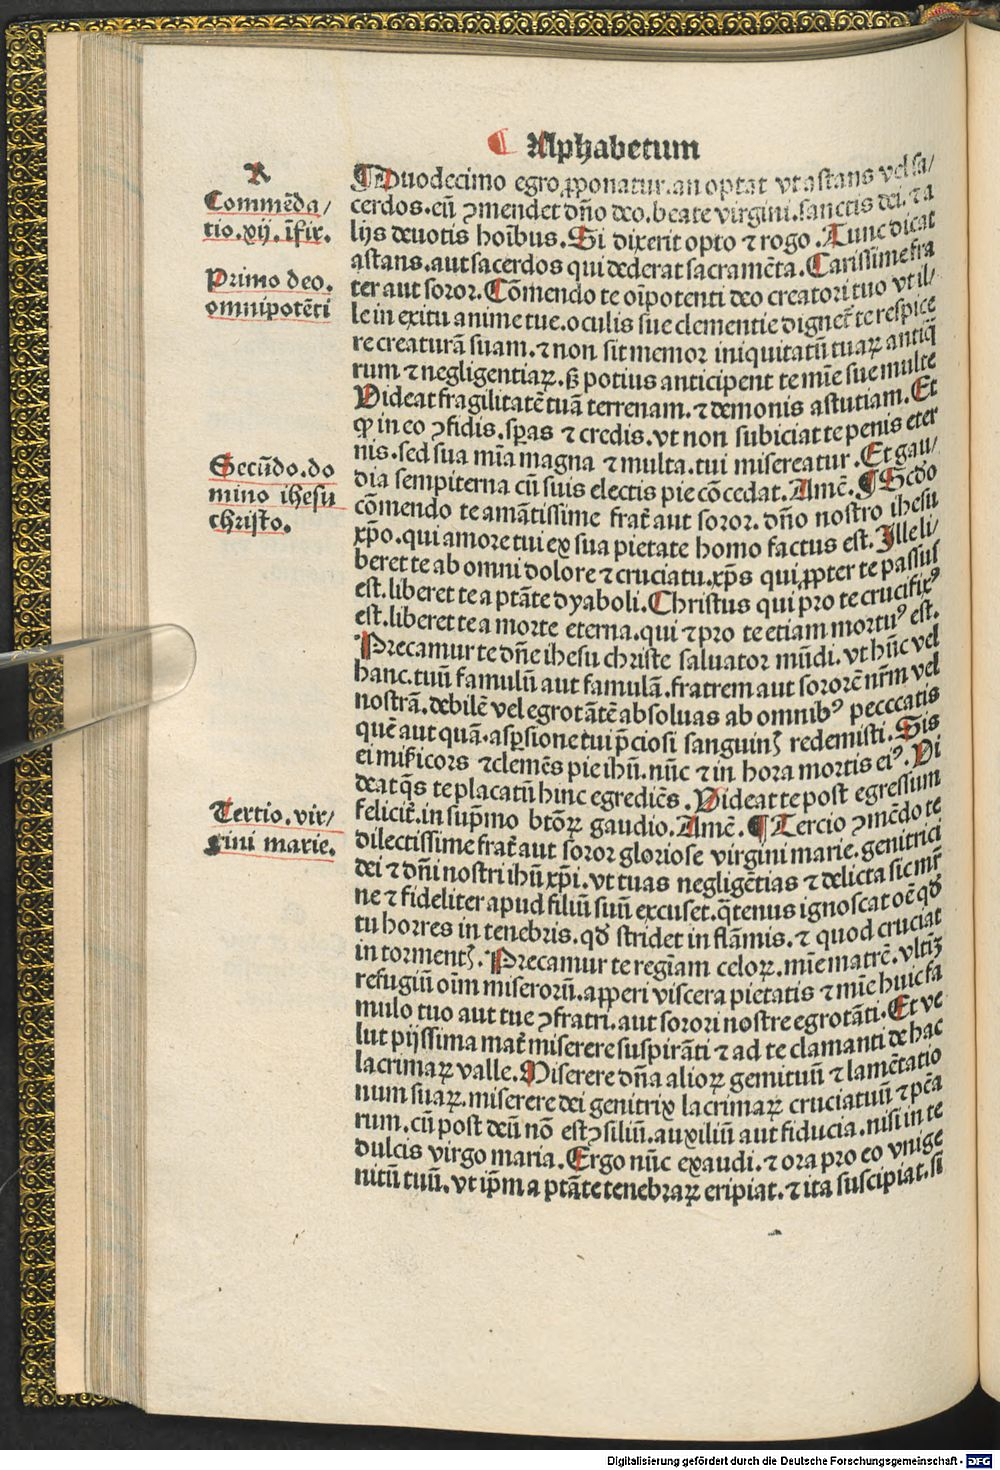 ¶ Alphabetum
R
Commēda/
tio.xij.īfir.
Primo deo.
omnipotēti
Secūdo.do
mino ihesu
christo.
Tertio.vir/
gini marie.
¶Duodecimo egro ꝓponatur.an optat vt astans vel sa/
cerdos.eū ꝯmendet dño deo.beate virgini.sanctis dei.⁊ a
lijs deuotis hoībus.Si dixerit opto ⁊ rogo.Tunc dicat
astans.aut sacerdos qui dederat sacramēta.Carissime fra
ter aut soror.Cōmendo te oīpotenti deo creatori tuo vt il/
le in exitu anime tue.oculis sue clementie dignet̄ te respice
re creaturā suam.⁊ non sit memor iniquitatū tuaꝝ antiq̄
rum ⁊ negligentiaꝝ.ß potius anticipent te mīe sue multe
Videat fragilitatē tuā terrenam.⁊ demonis astutiam.Et
ꝙ in eo ꝯfidis.sp̄as ⁊ credis.vt non subiciat te penis eter
nis.sed sua mīa magna ⁊ multa.tui misereatur.Et gau/
dia sempiterna cū suis electis pie cōcedat.Amē.¶Scd̄o
cōmendo te amātissime frat̄ aut soror.dño nostro ihesu
xp̄o.qui amore tui ex sua pietate homo factus est.Ille li/
beret te ab omni dolore ⁊ cruciatu.xp̄s qui ꝓpter te passus
est.liberet te a ptāte dyaboli.Christus qui pro te crucifixꝰ
est.liberet te a morte eterna.qui ⁊ pro te etiam mortuꝰ est.
Precamur te dñe ihesu christe saluator mūdi.vt hūc vel
hanc.tuū famulū aut famulā.fratrem aut sororē nr̄m vel
nostrā.debilē vel egrotātē absoluas ab omnibꝰ pecccatis
quē aut quā.asp̄sione tui p̄ciosi sanguinꝫ redemisti.Sis
ei mīsicors ⁊ clemēs pie ihū.nūc ⁊ in hora mortis eiꝰ.Vi
deat q̄s te placatū hinc egrediēs.Videat te post egressum
felicit̄.in sup̄mo btōꝝ gaudio.Amē.¶Tercio ꝯmēdo te
dilectissime frat̄ aut soror gloriose virgini marie.genitrici
dei ⁊ dñi nostri ihū xp̄i.vt tuas negligētias ⁊ delicta sic mr̄
ne ⁊ fideliter apud filiū suū excuset.q̄tenus ignoscat oē qd̄
tu horres in tenebris.qd̄ stridet in flāmis.⁊ quod cruciat
in tormentꝫ.Precamur te regīam celoꝝ.mīe matrē.vltīꝫ
refugiū oīm miseroꝝū.apperi viscera pietatis ⁊ mīe huic fa
mulo tuo aut tue ꝯfratri.aut sorori nostre egrotāti.Et ve
lut pijssima mat̄ miserere suspirāti ⁊ ad te clamanti de hac
lacrimaꝝ valle.Miserere dña alioꝝ gemituū ⁊ lamētatio
num suaꝝ.miserere dei genitrix lacrimaꝝ cruciatuū ⁊ pēa
rum.cū post deū nō est ꝯsiliū.auxiliū aut fiducia.nisi in te
dulcis virgo maria.Ergo nūc exaudi.⁊ ora pro eo vnige
nitū tuū.vt ip̄m a ptāte tenebraꝝ eripiat.⁊ ita suscipiat.si
Digitalisierung gefördert durch die Deutsche Forschungsgemeinschaft - DFG